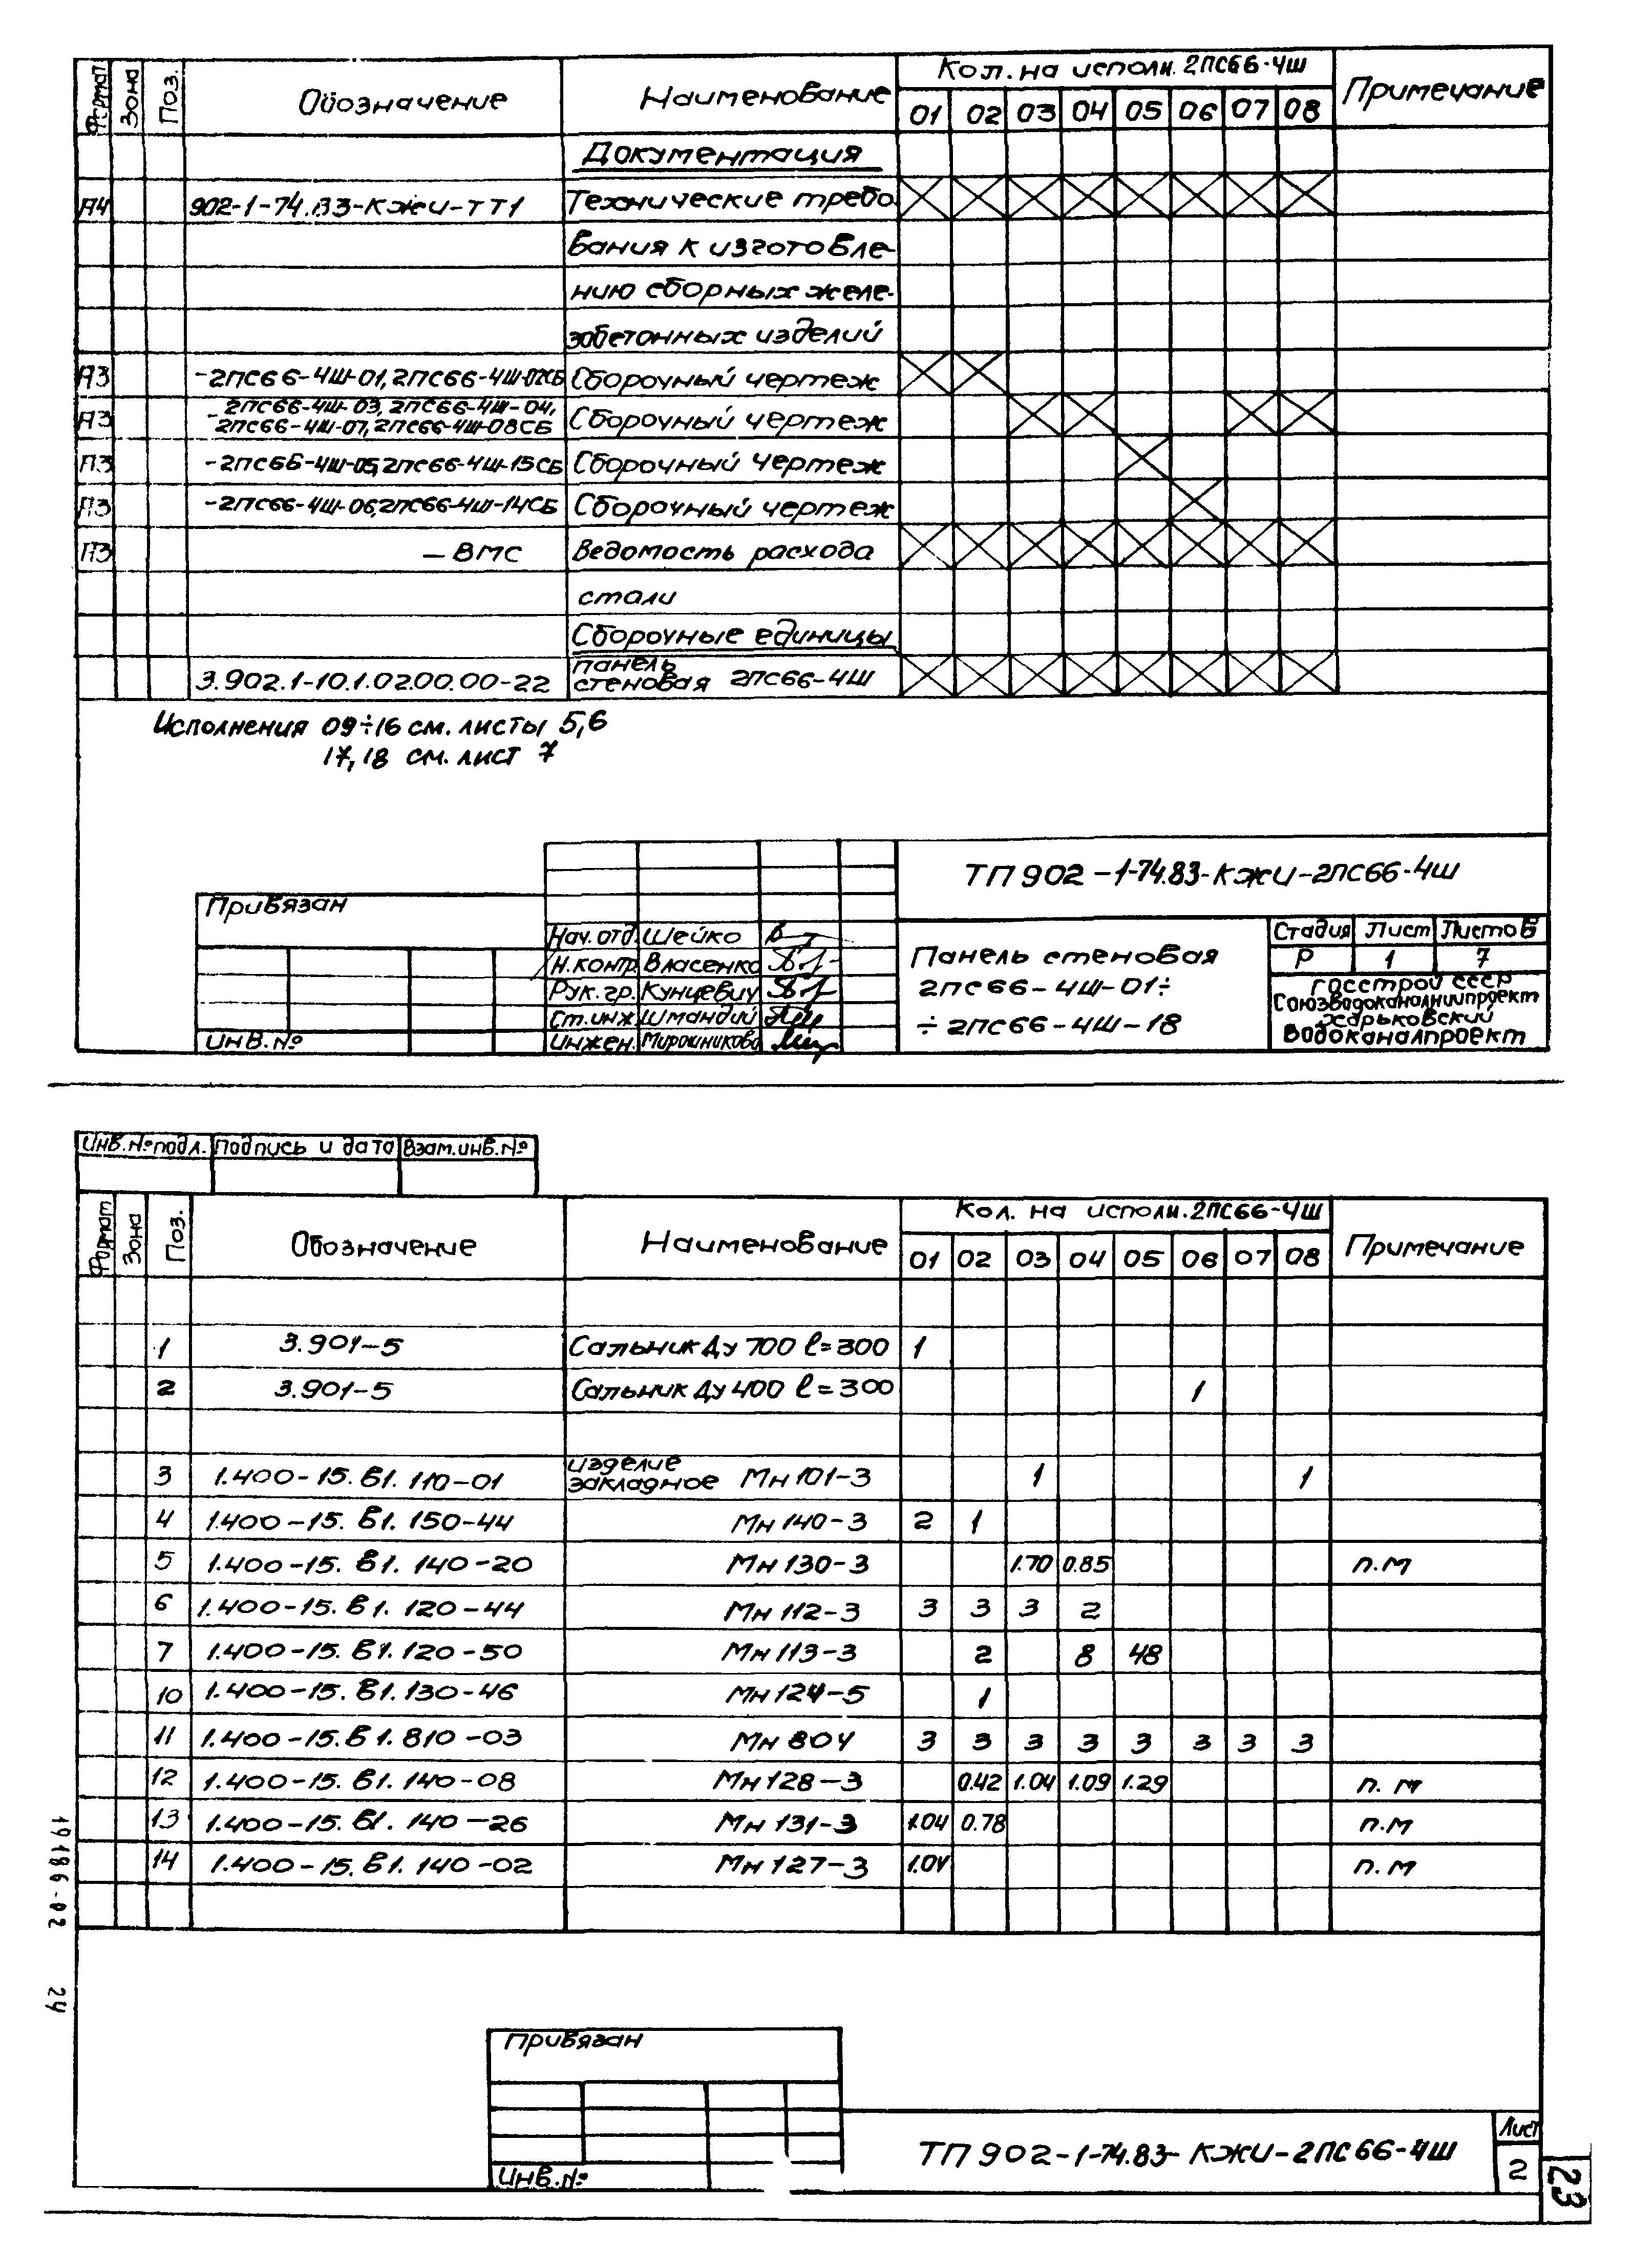 Формат Зона Поз. Обозначение Наименование Кол. на исполн. 2ПС66-4Ш Примечание
01 02 03 04 05 06 07 08
Документация
А4 902-1-74.83-КЖИ-ТТ1 Технические требо
вания к изготовле-
нию сборных желе-
зобетонных изделий
А3 -2ПС66-4Ш-01, 2ПС66-4Ш-02СБ Сборочный чертеж
А3 -2ПС66-4Ш-03, 2ПС66-4Ш-04, Сборочный чертеж
2ПС66-4Ш-07, 2ПС66-4Ш-08СБ
А3 -2ПС66-4Ш-05, 2ПС66-4Ш-15СБ Сборочный чертеж
А3 -2ПС66-4Ш-06, 2ПС66-4Ш-14СБ Сборочный чертеж
А3 -ВМС Ведомость расхода
стали
Сборочные единицы
3.902.1-10.1.02.00.00-22 панель стеновая 2ПС66-4Ш
Исполнения 09÷16 см. листы 5,6
17,18 см. лист 7
ТП 902-1-74.83-КЖИ-2ПС66-4Ш
Привязан
Нач. отд. Шейко
Н. контр. Власенко
Рук. гр. Кунцевич
Ст. инж. Шмандий
Инжен. Мирошникова
Инв. №
Панель стеновая
2ПС66-4Ш-01÷
÷2ПС66-4Ш-18
Стадия Лист Листов
Р 1 7
Госстрой СССР
Союзводоканалниипроект
Харьковский
Водоканалпроект
Инв. № подл. Подпись и дата Взам. инв. №
Формат Зона Поз. Обозначение Наименование Кол. на исполн. 2ПС66-4Ш Примечание
01 02 03 04 05 06 07 08
1 3.901-5 Сальник Ду 700 ℓ=300 1
2 3.901-5 Сальник Ду 400 ℓ=300 1
3 1.400-15.В1.110-01 изделие закладное МН 101-3 1 1
4 1.400-15.В1.150-44 МН 140-3 2 1
5 1.400-15.В1.140-20 МН 130-3 1.70 0.85 п.м
6 1.400-15.В1.120-44 МН 112-3 3 3 3 2
7 1.400-15.В1.120-50 МН 113-3 2 8 48
10 1.400-15.В1.130-46 МН 124-5 1
11 1.400-15.В1.810-03 МН 804 3 3 3 3 3 3 3 3
12 1.400-15.В1.140-08 МН 128-3 0.42 1.04 1.09 1.29 п.м
13 1.400-15.В1.140-26 МН 131-3 1.04 0.78 п.м
14 1.400-15.В1.140-02 МН 127-3 1.04 п.м
19186-02 24
Привязан
Инв. №
ТП 902-1-74.83-КЖИ-2ПС66-4Ш
Лист
2
23